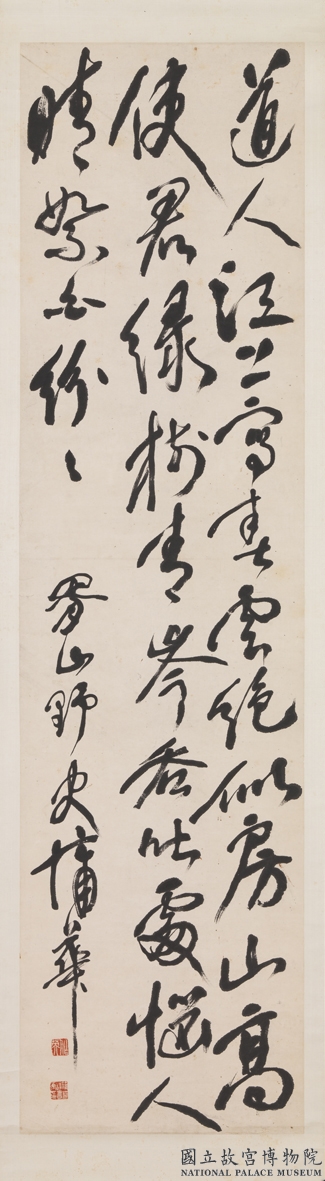 道人江上寫春雲絕似房山高
使君綠樹青岑吞吐處惱人
晴絮白紛々
胥山野史蒲華
國立故宮博物院
NATIONAL PALACE MUSEUM